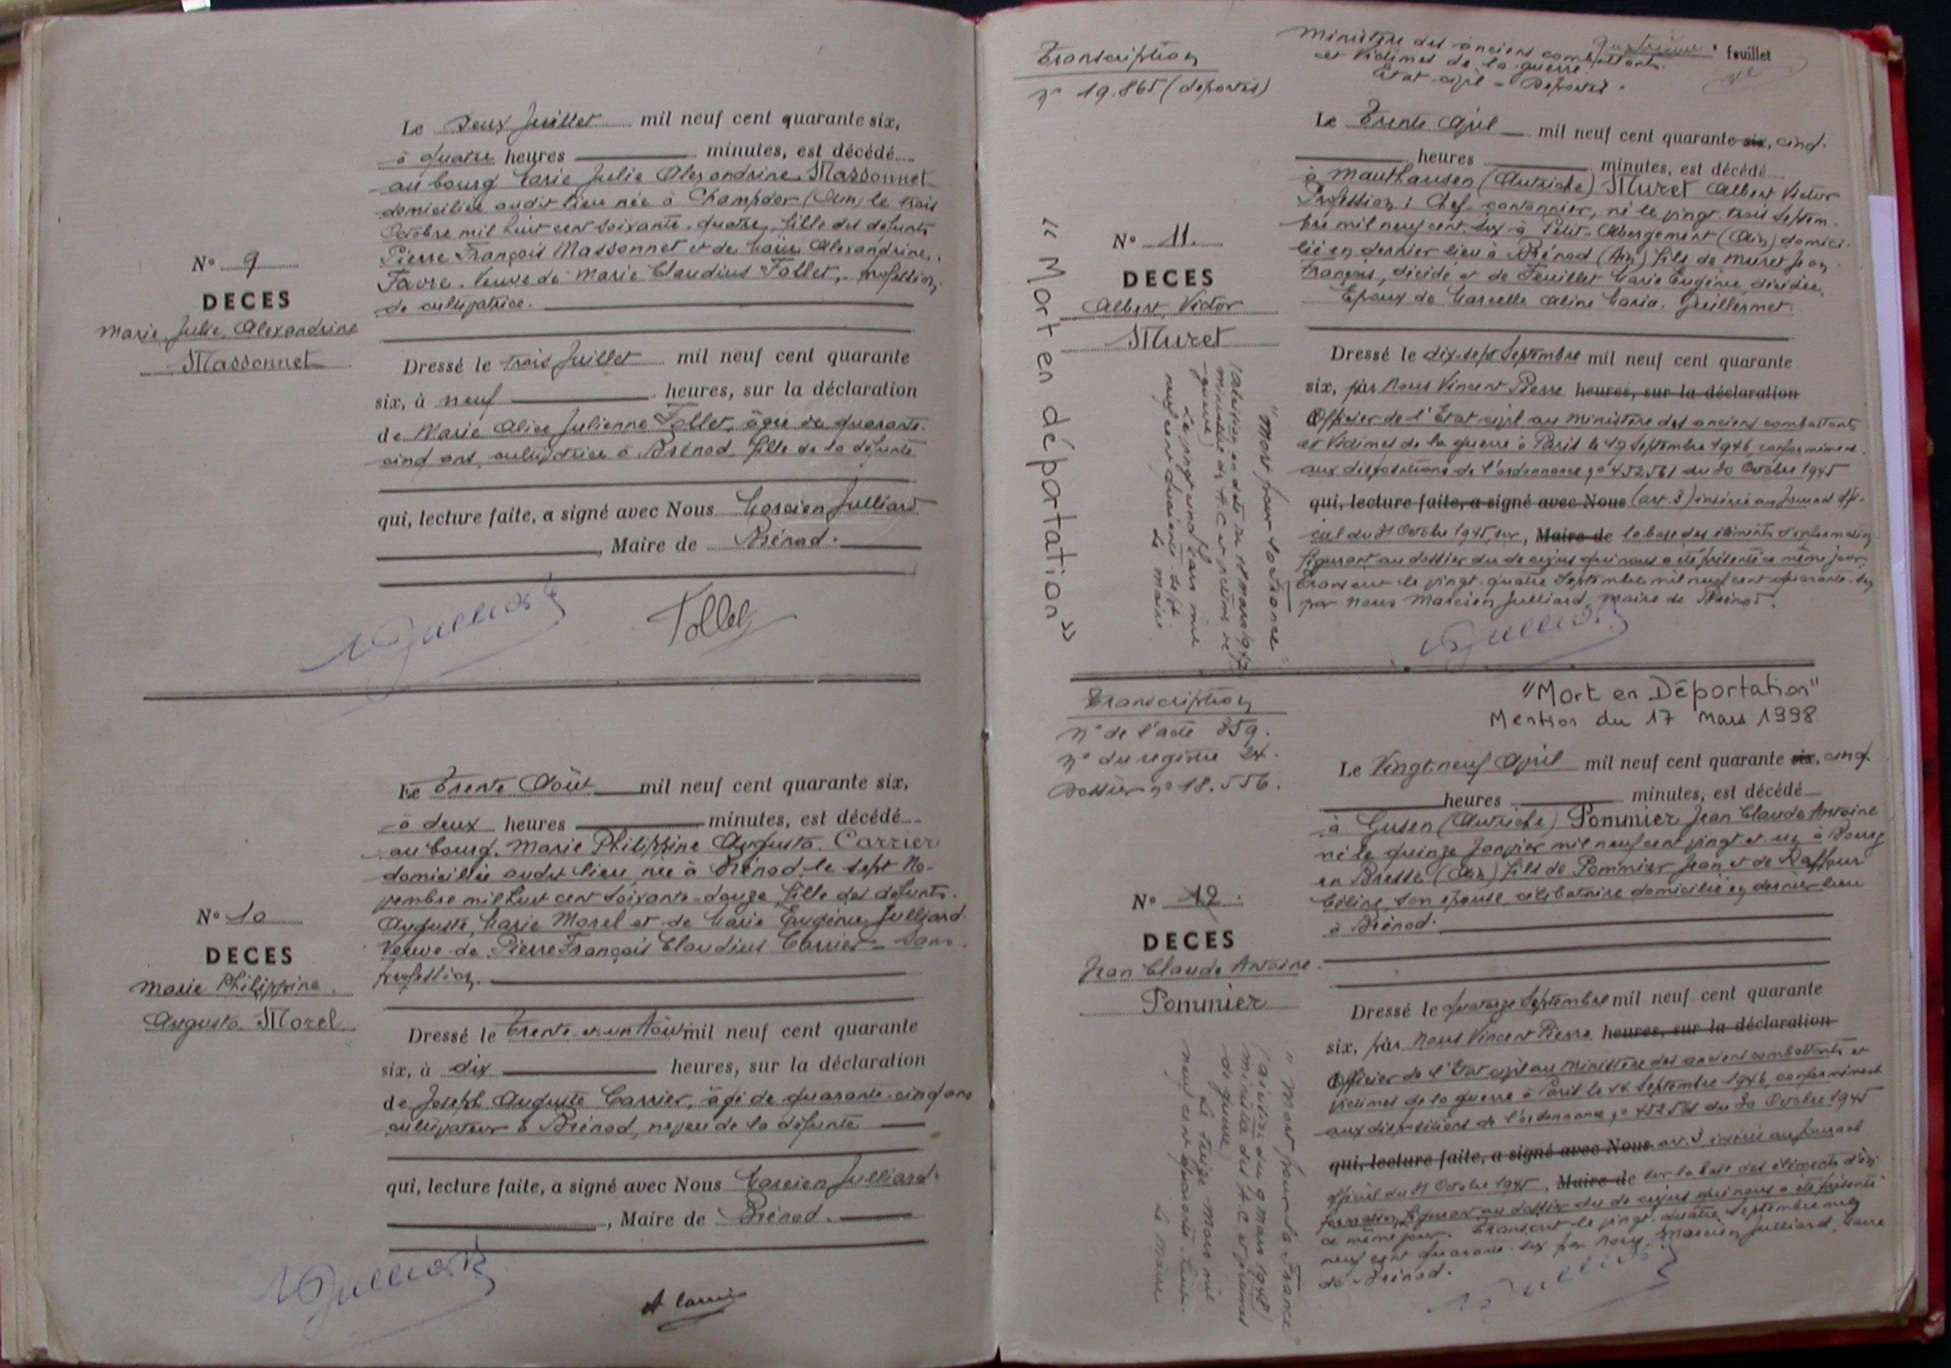 Le Deux Juillet mil neuf cent quarante six,
à quatre heures minutes, est décédé
au bourg Marie Julie Alexandrine Massonnet
domiciliée audit lieu née à Champdor (Ain) le trois
Octobre mil huit cent soixante-quatre, fille des défunts
Pierre François Massonnet et de Marie Alexandrine
Favre. Veuve de Marie Claudius Follet, profession
de cultivatrice.
N° 9
DECES
Marie Julie Alexandrine
Massonnet
Dressé le trois Juillet mil neuf cent quarante
six, à neuf heures, sur la déclaration
de Marie Alice Julienne Follet, âgée de quarante
cinq ans, cultivatrice à Brénod, fille de la défunte
qui, lecture faite, a signé avec Nous Marcien Julliard
, Maire de Brénod.
M Julliard
Follet
Le Trente Août mil neuf cent quarante six,
à deux heures minutes, est décédé
au bourg. Marie Philippine Augusta Carrier
domiciliée audit lieu, née à Brénod le sept No-
vembre mil huit cent soixante-douze fille des défunts
Auguste Marie Morel et de Marie Eugénie Julliard
Veuve de Pierre François Claudius Carrier - sans
profession.
N° 10
DECES
Marie Philippine
Augusta Morel
Dressé le trente et un Août mil neuf cent quarante
six, à dix heures, sur la déclaration
de Joseph Auguste Carrier, âgé de quarante-cinq ans
cultivateur à Brénod, neveu de la défunte
qui, lecture faite, a signé avec Nous Marcien Julliard.
, Maire de Brénod.
M Julliard
A Carrier
Transcription
n° 19.865 (déportés)
Ministère des anciens combattants
et Victimes de la guerre
Etat-civil - Déportés.
feuillet
Le Trente Avril mil neuf cent quarante six, cinq.
heures minutes, est décédé
à Mauthausen (Autriche) Muret Albert Victor
Profession: Chef-cantonnier, né le vingt trois Septem-
bre mil neuf cent six à Petit-Abergement (Ain) domici-
lié en dernier lieu à Brénod (Ain) fils de Muret Jean
François, décédé et de Feuillet Marie Eugénie, décédée.
Epoux de Marcelle Aline Maria Guillermet.
N° 11.
DECES
Albert Victor
Muret
"Mort en déportation"
"Mort pour la France"
Dressé le dix-sept Septembre mil neuf cent quarante
six, par Nous Vincent Pierre heures, sur la déclaration
Officier de l'Etat civil au Ministère des anciens combattants
et Victimes de la guerre à Paris le 19 Septembre 1946 conformément
aux dispositions de l'ordonnance n° 452.561 du 30 Octobre 1945
qui, lecture faite, a signé avec Nous (art. 3) insérée au Journal offi-
ciel du 31 Octobre 1945, sur, Maire de la base des éléments d'information
figurant au dossier du de cujus qui nous a été présenté ce même jour.
Transcrit le vingt-quatre Septembre mil neuf cent quarante-six
par Nous Marcien Julliard, maire de Brénod.
M Julliard
Transcription
n° de l'acte 859.
n° du registre 24.
Dossier n° 18.556.
"Mort en Déportation"
Mention du 17 Mars 1998
Le Vingt-neuf Avril mil neuf cent quarante six, cinq.
heures minutes, est décédé
à Gusen (Autriche) Pommier Jean Claude Antoine
né le quinze Janvier mil neuf cent vingt et un à Bourg
en Bresse (Ain) fils de Pommier Jean et de
son épouse, célibataire domicilié en dernier lieu
à Brénod.
N° 12.
DECES
Jean Claude Antoine
Pommier
"Mort pour la France"
Dressé le quatorze Septembre mil neuf cent quarante
six, par Nous Vincent Pierre heures, sur la déclaration
Officier de l'Etat civil au Ministère des anciens combattants et
Victimes de la guerre à Paris le Septembre 1946, conformément
aux dispositions de l'ordonnance n° 452.561 du 30 Octobre 1945
qui, lecture faite, a signé avec Nous art. 3 insérée au Journal
officiel du 31 Octobre 1945, Maire de sur la base des éléments d'in-
formation figurant au dossier du de cujus qui nous a été présenté
ce même jour. Transcrit le vingt-quatre Septembre mil
neuf cent quarante-six par Nous, Marcien Julliard, Maire
de Brénod.
M Julliard